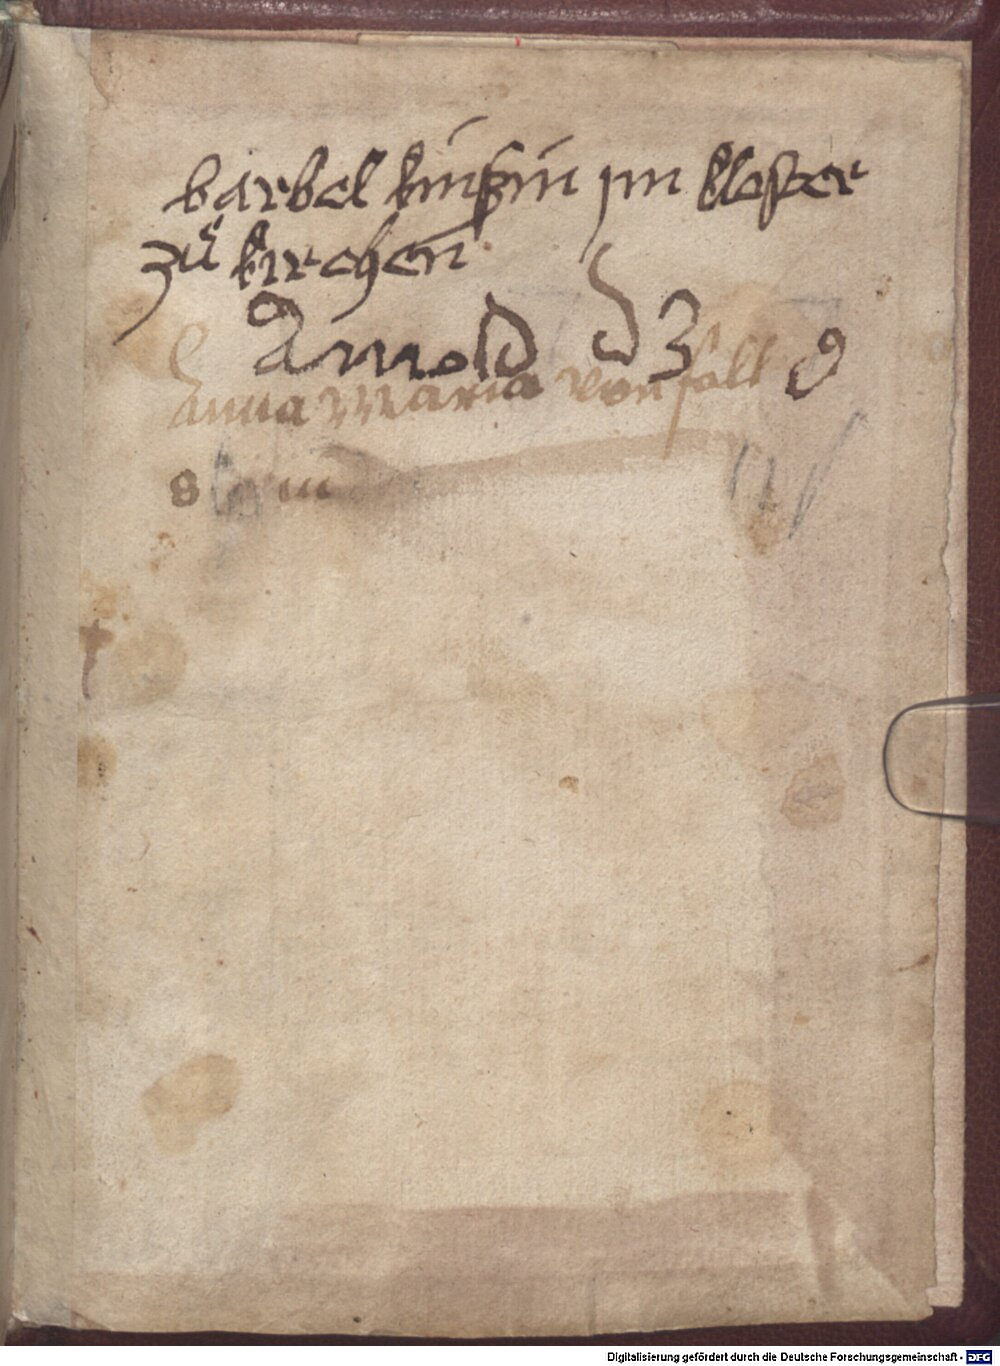 barbel künßin im kloster
zů kirchen
Arnold D 3 9
anna maria von
8
Digitalisierung gefördert durch die Deutsche Forschungsgemeinschaft - DFG